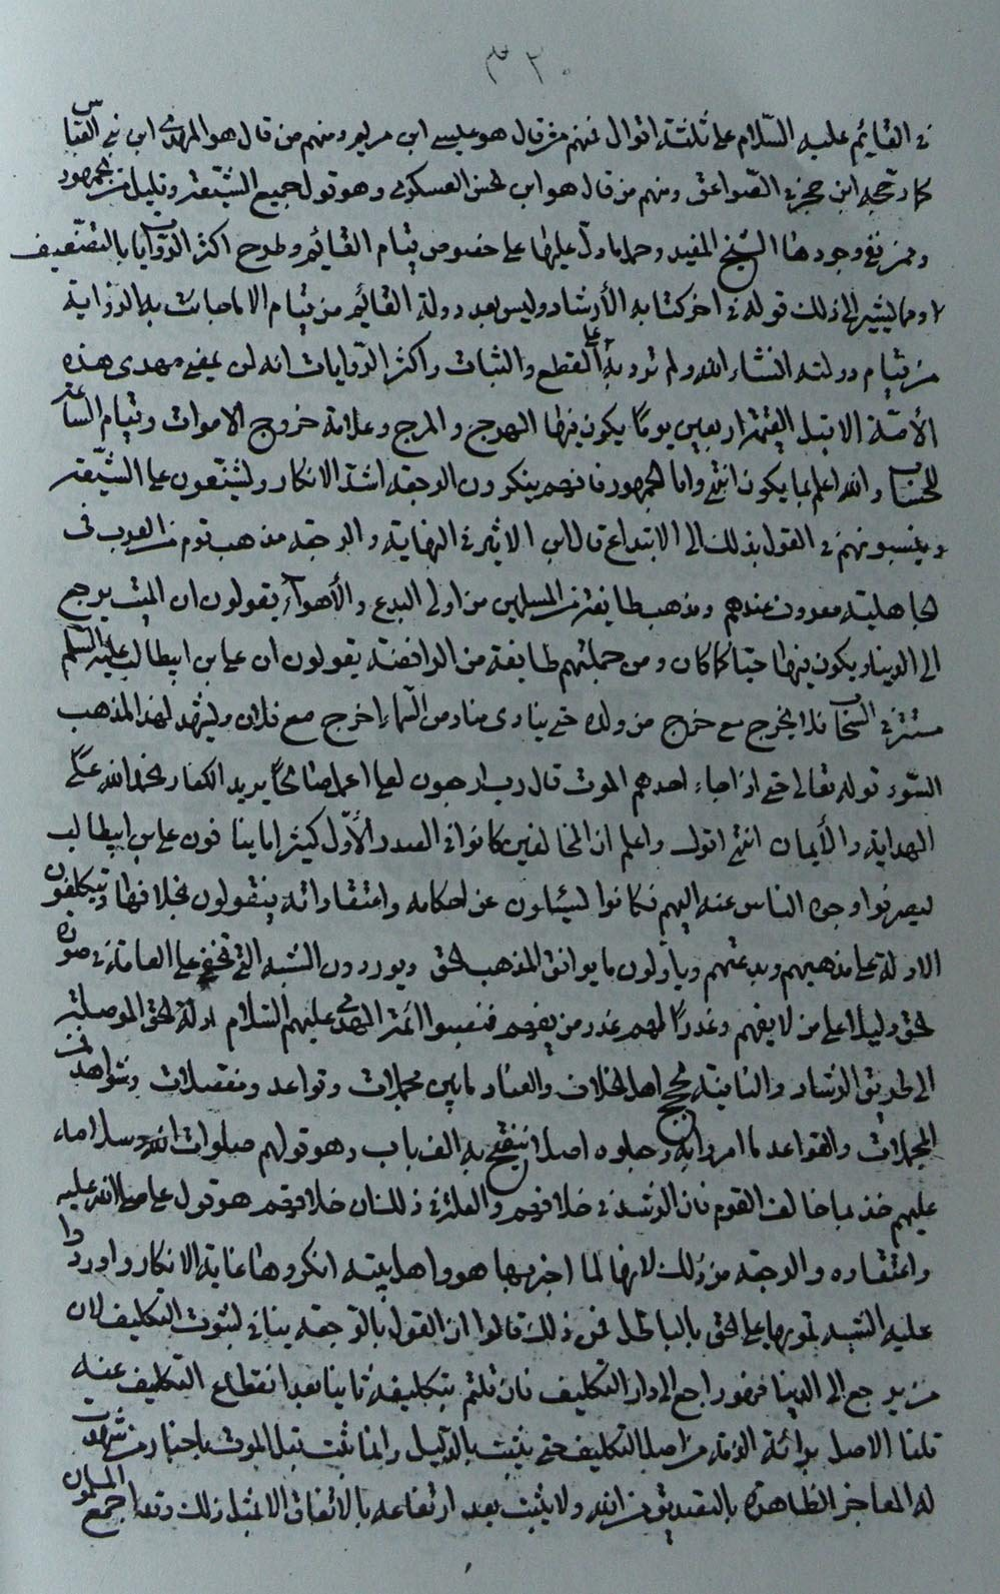 ٣٢٠
في القائم عليه السّلام على ثلثة اقوال فمنهم من قال هو عيسى ابن مريم ومنهم من قال هو المهدي ابن بني العبّاس
كما رجّحه ابن حجر في الصّواعق ومنهم من قال هو ابن الحسن العسكري وهو قول جميع الشّيعة وقليل من الجمهور
وممن نفى وجودها الشيخ المفيد وحمل ما دلّ عليها على خصوص قيام القائم وطرح اكثر الرّوايات بالتضّعيف
ومما يشير الى ذلك قوله في اخر كتابه الأرشاد وليس بعد دولة القائم من قيام الا ما جائت به الرواية
من قيام دولته انشاء الله ولم ترد به على القطع والثبات واكثر الرّوايات انه لن يمضي مهدى هذه
الأمّة الا قبل القيمة اربعين يومًا يكون فيها الهرج والمرج وعلامة خروج الاموات وقيام الساعة
للحساب والله اعلم بما يكون انتهى واما الجمهور فانهم ينكرون الرجعة اشدّ الانكار ويشنّعون على الشّيعة
وينسبونهم في القول بذلك الى الابتداع قال ابن الاثير في النهاية والرجعة مذهب قوم من العرب في
الجاهلية معروف عندهم ومذهب طايفة من المسلمين من اولى البدع والأهوآء يقولون ان الميّت يرجع
الى الدنيا ويكون فيها حيّا كما كان ومن جملتهم طايفة من الرافضة يقولون ان علي بن ابيطالب عليه السّلم
مستتر في السّحاب فلا يخرج مع من خرج من ولده حتى ينادى مناد من السّماء اخرج مع فلان ويشهد لهذا المذهب
السّوء قوله تعالى حتى اذا جاء احدهم الموت قال رب ارجعون لعلي اعمل صالحًا يريد الكفار نحمد الله على
الهداية والأيمان انتهى اقول واعلم ان المخالفين كانوا في الصدر الأوّل كثيرا ما ينافون علي بن ابيطالب
ليصرفوا وجوه الناس عنه اليهم فكانوا يسئلون عن احكامه واعتقاداته فيقولون بخلافها ويتكلفون
الادلة على مذهبهم وبدعتهم ويأولون ما يوافق المذهب الحق ويوردون الشبه التي تخفى على العامة في صورة
الحق دليلا على من لا يفهم وغدرًا لهم غدر من يفهم فنصبوا ائمّة الهدى عليهم السّلام ادلّة الحق الموصلة
الى طريق الرشاد والنافية لحجج اهل الخلاف والعناد ما بين مجملات وقواعد ومفصلات وشواهد في
المجملات والقواعد ما امروا به وجعلوه اصلا ينفتح به الف باب وهو قولهم صلوات الله وسلامه
عليهم خذ بما خالف القوم فان الرشد في خلافهم والعلة في ذلك ان خلافهم هو قول علي صلى الله عليه
واعتقاده والرجعة من ذلك لانها لما اخبر بها هو واهل بيته انكروها غاية الانكار واوردوا
عليه الشبه تمويها على الحق بالباطل فمن ذلك قالوا ان القول بالرجعة ينافي ثبوت التكليف لان
من يرجع الى الدنيا فهو راجع الى دار التكليف فان قلتم بتكليفه ثانيا بعد انقطاع التكليف عنه
قلنا الاصل برائة الذمة من اصل التكليف حتى يثبت بالدليل وانما ثبت قبل الموت باخبار من شهدت
له المعاجز الظاهرة بالتصديق من الله ولا يثبت بعد ارتفاعه بالاتفاق الا بمثل ذلك وقد اجمع المسلمون